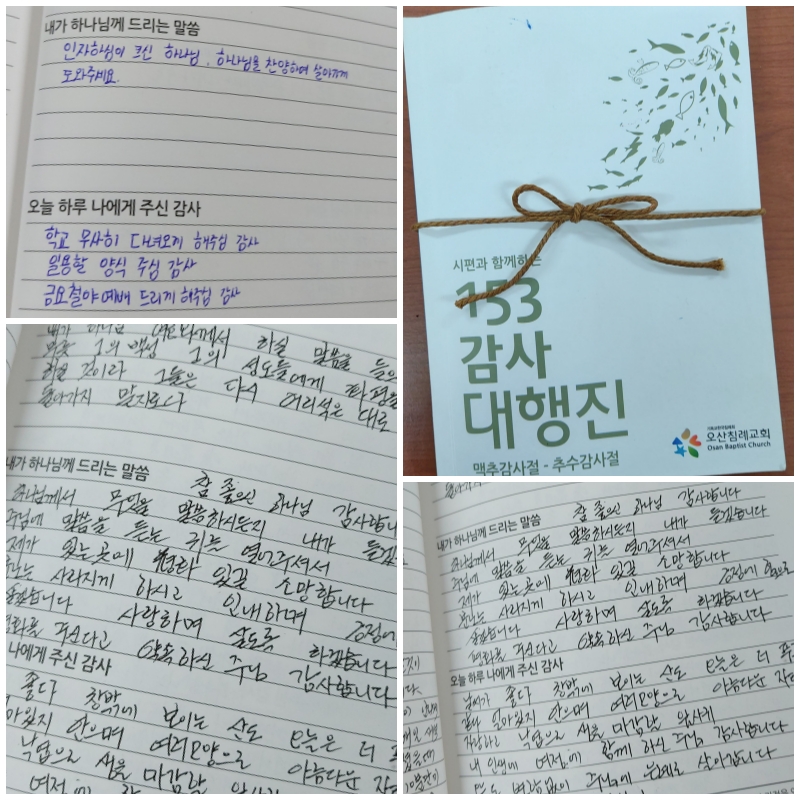 내가 하나님께 드리는 말씀
인자하심이 크신 하나님, 하나님을 찬양하며 살아가게
도와주세요.
오늘 하루 나에게 주신 감사
학교 무사히 다녀오게 해주심 감사
일용할 양식 주심 감사
금요철야예배 드리게 해주심 감사
시편과 함께하는
153
감사
대행진
맥추감사절 - 추수감사절
오산침례교회
Osan Baptist Church
내가 하나님 여호와께서 하실 말씀을 들으
무릇 그의 백성 그의 성도들에게 화평을
하실 것이라 그들은 다시 어리석은 데로
돌아가지 말지로다
내가 하나님께 드리는 말씀
참 좋으신 하나님 감사합니다
하나님께서 무엇을 말씀하시든지 내가 듣겠
주님에 말씀을 듣는 귀를 열어주셔서
제가 있는곳에 평화 있길 소망합니다
분노는 사라지게 하시고 인내하며 긍정에
살겠습니다 사랑하며 살도록 하겠습니다
평화를 주신다고 약속하신 주님 감사합니다
나에게 주신 감사
좋다 창밖에 보이는 산도 오늘은 더 푸
앉아있지 안으며 여러모양으로 아름다운 자
낙엽으로 삶을 마감할
여전에
돌아가지
내가 하나님께 드리는 말씀
참 좋으신 하나님 감사합니다
하나님께서 무엇을 말씀하시든지 내가 듣겠
주님에 말씀을 듣는 귀를 열어주셔서
제가 있는곳에 평화 있길 소망합니다
분노는 사라지게 하시고 인내하며 긍정에 힘으로
살겠습니다 사랑하며 살도록 하겠습니다
평화를 주신다고 약속하신 주님 감사합니다
오늘 하루 나에게 주신 감사
날씨가 좋다 창밖에 보이는 산도 오늘은 더 푸
앉아있지 안으며 여러모양으로 아름다운 자
자랑하고 낙엽으로 삶을 마감할
내 인생에 여전에 함께 하신 주님 감사합니다
변함없이 주님에 은혜로 살아갑니다